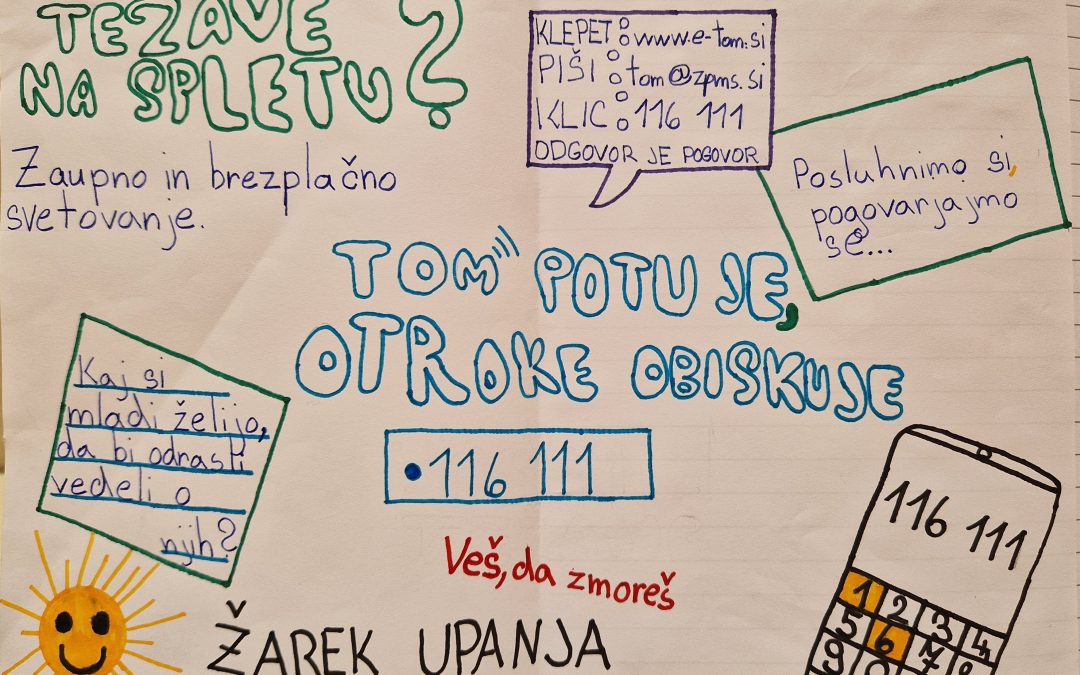 TEŽAVE
NA SPLETU?
Zaupno in brezplačno
svetovanje.
KLEPET: www.e-tom.si
PIŠI: tom@zpms.si
KLIC: 116 111
ODGOVOR JE POGOVOR
Posluhnimo si,
pogovarjajmo
se...
TOM POTUJE,
OTROKE OBISKUJE
116 111
Kaj si
mladi želijo,
da bi odrasli
vedeli o
njih?
Veš, da zmoreš
ŽAREK UPANJA
116 111
1 2 3 4
5 6 7 8
9